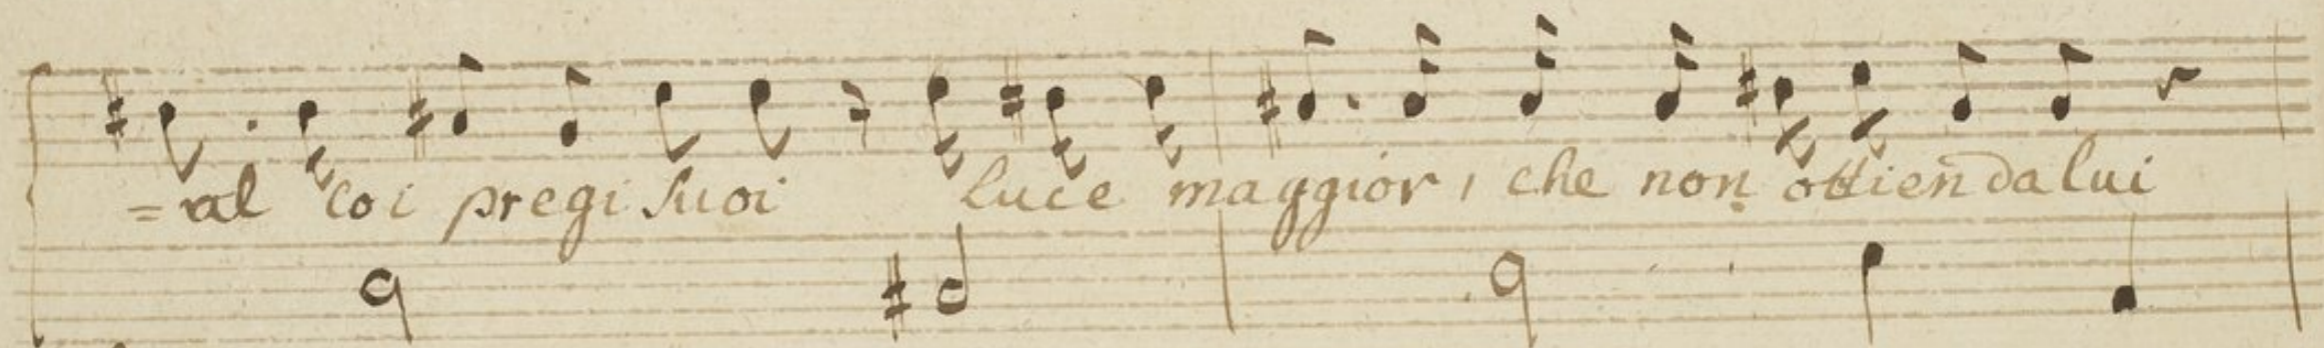 =val coi pregi suoi luce maggior, che non ottien da lui